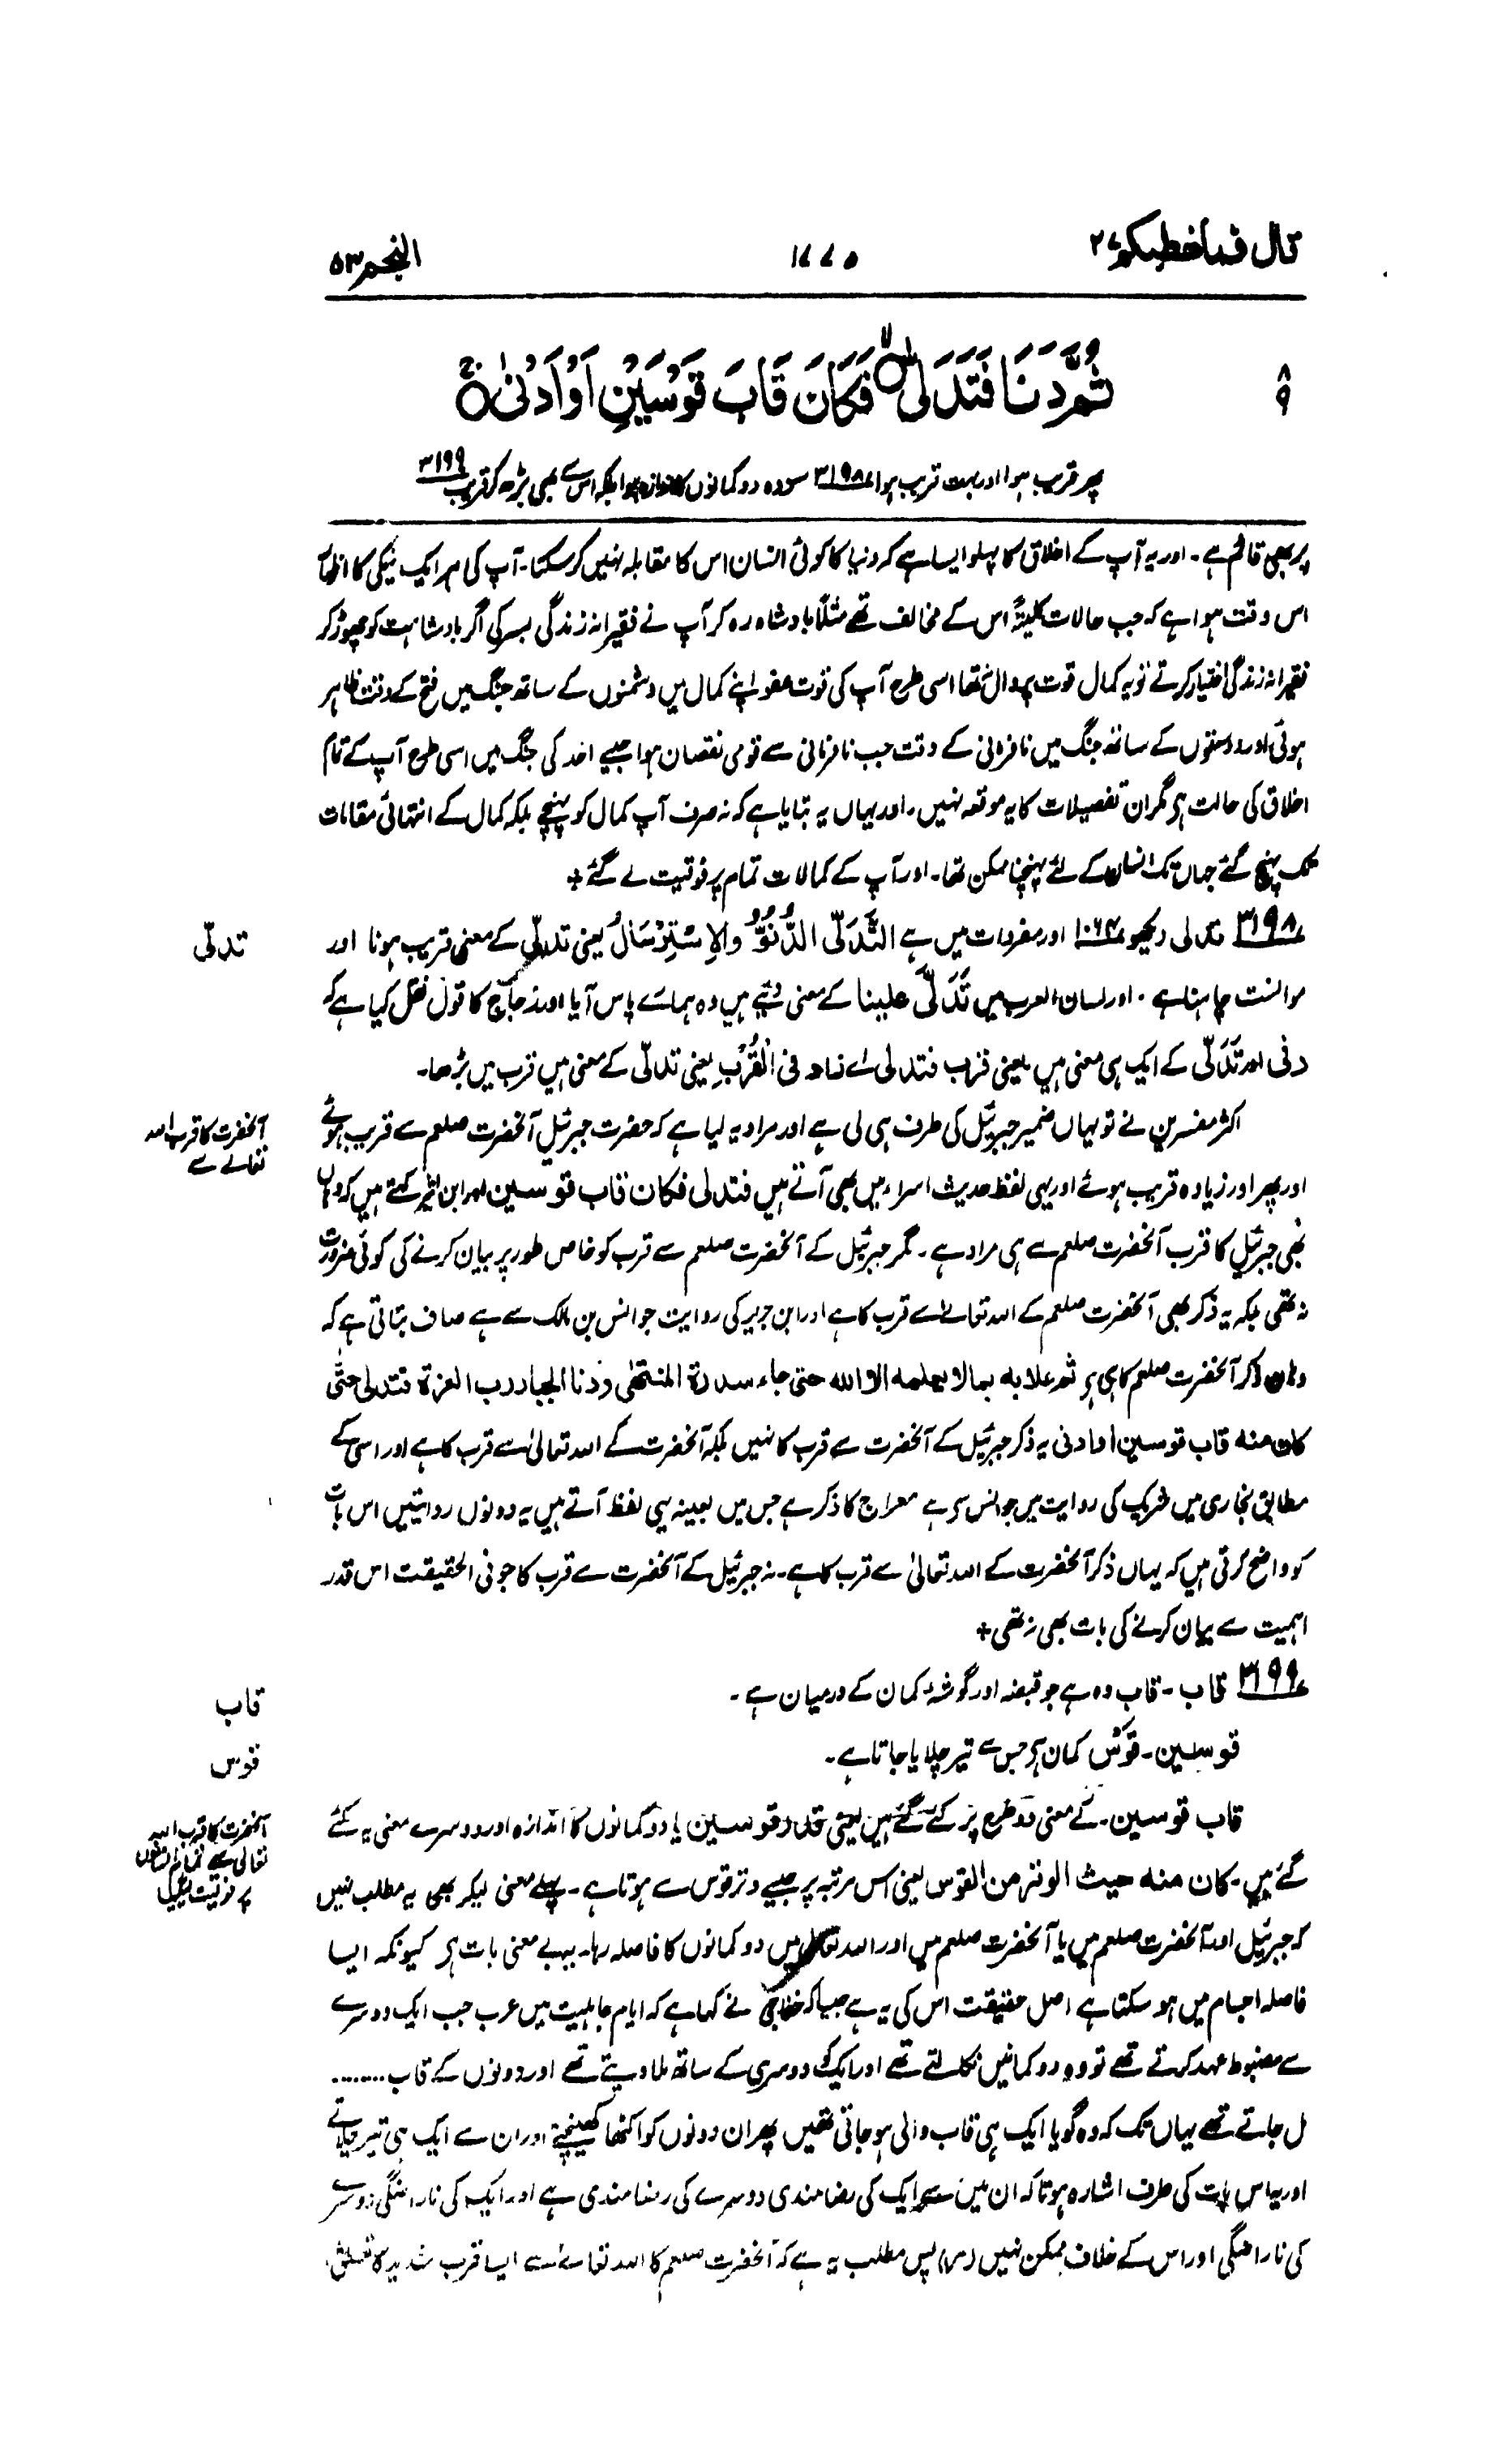 قال فما خطبکم ۲۷
۱۷۷۵
النجم ۵۳
ثُمَّ دَنَا فَتَدَلّٰی ۙ فَکَانَ قَابَ قَوْسَیْنِ اَوْ اَدْنٰی ۚ
۸
۹
پھر قریب ہوا اور بہت قریب ہوا ۳۱۹۸ سو وہ دو کمانوں کا اندازہ ہوا بلکہ اس سے بھی بڑھ کر قریب ۳۱۹۹
پر بھی قائم ہے۔ اور یہ آپ کے اخلاق کا پہلو ایسا ہے کہ دنیا کا کوئی انسان اس کا مقابلہ نہیں کر سکتا۔ آپ کی ہر ایک نیکی کا اظہار
اس وقت ہوا ہے کہ جب حالات کلیۃً اس کے مخالف تھے مثلاً بادشاہ رہ کر آپ نے فقیرانہ زندگی بسر کی اگر بادشاہت کو چھوڑ کر
فقیرانہ زندگی اختیار کرتے تو یہ کمال قوت پر دال نہ تھا اسی طرح آپ کی قوت عفو اپنے کمال میں دشمنوں کے ساتھ جنگ میں فتح کے وقت ظاہر
ہوئی اور دوستوں کے ساتھ جنگ میں نافرمانی کے وقت جب نافرمانی سے قومی نقصان ہوا جیسے احد کی جنگ میں اسی طرح آپ کے تمام
اخلاق کی حالت ہے مگر ان تفصیلات کا یہ موقعہ نہیں۔ اور یہاں یہ بتایا ہے کہ نہ صرف آپ کمال کو پہنچے بلکہ کمال کے انتہائی مقامات
تک پہنچ گئے جہاں تک انسان کے لئے پہنچنا ممکن تھا۔ اور آپ کے کمالات تمام پر فوقیت لے گئے +
۳۱۹۸ تدلی دیکھو ۱۰۶۴ اور مفردات میں ہے التَّدَلّی الدُّنُوُّ والاِسْتِرْسَالُ یعنی تدلّی کے معنی قریب ہونا اور
تدلّی
موانست چاہنا ہے۔ اور لسان العرب میں تَدَلّٰی علینا کے معنی دیئے ہیں وہ ہمارے پاس آیا اور زجاج کا قول نقل کیا ہے کہ
دنٰی اور تَدَلّی کے ایک ہی معنی ہیں یعنی قرب فتدلی اے زاد فی الْقُرْبِ یعنی تدلّی کے معنی ہیں قرب میں بڑھا۔
اکثر مفسرین نے تو یہاں ضمیر جبرئیل کی طرف ہی لی ہے اور مراد یہ لیا ہے کہ حضرت جبرئیل آنحضرت صلعم سے قریب ہوئے
آنحضرت کا قرب اللہ
تعالےٰ سے
اور پھر اور زیادہ قریب ہوئے اور یہی لفظ حدیث اسراء میں بھی آتے ہیں فتدلی فکان قاب قوسین اور ابن اثیر کہتے ہیں کہ وہاں
بھی جبرئیل کا قرب آنحضرت صلعم سے ہی مراد ہے۔ مگر جبرئیل کے آنحضرت صلعم سے قرب کو خاص طور پر بیان کرنے کی کوئی ضرورت
نہ تھی بلکہ یہ ذکر بھی آنحضرت صلعم کے اللہ تعالےٰ سے قرب کا ہے اور ابن جریر کی روایت جو انس بن مالک سے ہے صاف بتاتی ہے کہ
وہاں ذکر آنحضرت صلعم کا ہی ہے ثم علا بہ بما لا یعلمہ الا اللہ حتی جاء سدرۃ المنتھٰی ودنا الجبار رب العزۃ فتدلی حتّٰی
کان منہ قاب قوسین او ادنی یہ ذکر جبرئیل کے آنحضرت سے قرب کا نہیں بلکہ آنحضرت کے اللہ تعالیٰ سے قرب کا ہے اور اسی کے
مطابق بخاری میں شریک کی روایت میں جو انس سے ہے معراج کا ذکر ہے جس میں بعینہ یہی لفظ آتے ہیں یہ دونوں روایتیں اس بات
کو واضح کرتی ہیں کہ یہاں ذکر آنحضرت کے اللہ تعالیٰ سے قرب کا ہے۔ نہ جبرئیل کے آنحضرت سے قرب کا جو فی الحقیقت اس قدر
اہمیت سے بیان کرنے کی بات بھی نہ تھی +
۳۱۹۹ قاب۔ قاب وہ ہے جو قبضہ اور گوشۂ کمان کے درمیان ہے۔
قاب
قوسین۔ قَوْسٌ کمان ہے جس سے تیر چلایا جاتا ہے۔
قوس
قاب قوسین۔ کے معنی دو طرح پر کئے گئے ہیں یعنی قدر قوسین یا دو کمانوں کا اندازہ اور دوسرے معنی یہ کئے
آنحضرت کا قرب اللہ
تعالیٰ سے تمام انسانوں
پر فوقیت
گئے ہیں۔ کان منہ حیث الوتر من القوس یعنی اس مرتبہ پر جیسے وتر قوس سے ہوتا ہے۔ پہلے معنی لیکر بھی یہ مطلب نہیں
کہ جبرئیل اور آنحضرت صلعم میں یا آنحضرت صلعم میں اور اللہ تعالیٰ میں دو کمانوں کا فاصلہ رہا۔ یہ بے معنی بات ہے کیونکہ ایسا
فاصلہ اجسام میں ہو سکتا ہے اصل حقیقت اس کی یہ ہے جیسا کہ خفاجی نے کہا ہے کہ ایام جاہلیت میں عرب جب ایک دوسرے
سے مضبوط عہد کرتے تھے تو وہ دو کمانیں نکالتے تھے اور ایک کو دوسری کے ساتھ ملا دیتے تھے اور دونوں کے قاب ........
مل جاتے تھے یہاں تک کہ وہ گویا ایک ہی قاب والی ہو جاتی تھیں پھر ان دونوں کو اکٹھا کھینچتے اور ان سے ایک ہی تیر چلاتے
اور یہ اس بات کی طرف اشارہ ہوتا کہ ان میں سے ایک کی رضامندی دوسرے کی رضامندی ہے اور ایک کی ناراضگی دوسرے
کی ناراضگی اور اس کے خلاف ممکن نہیں (ر) پس مطلب یہ ہے کہ آنحضرت صلعم کا اللہ تعالےٰ سے ایسا قرب شدید کا تعلق